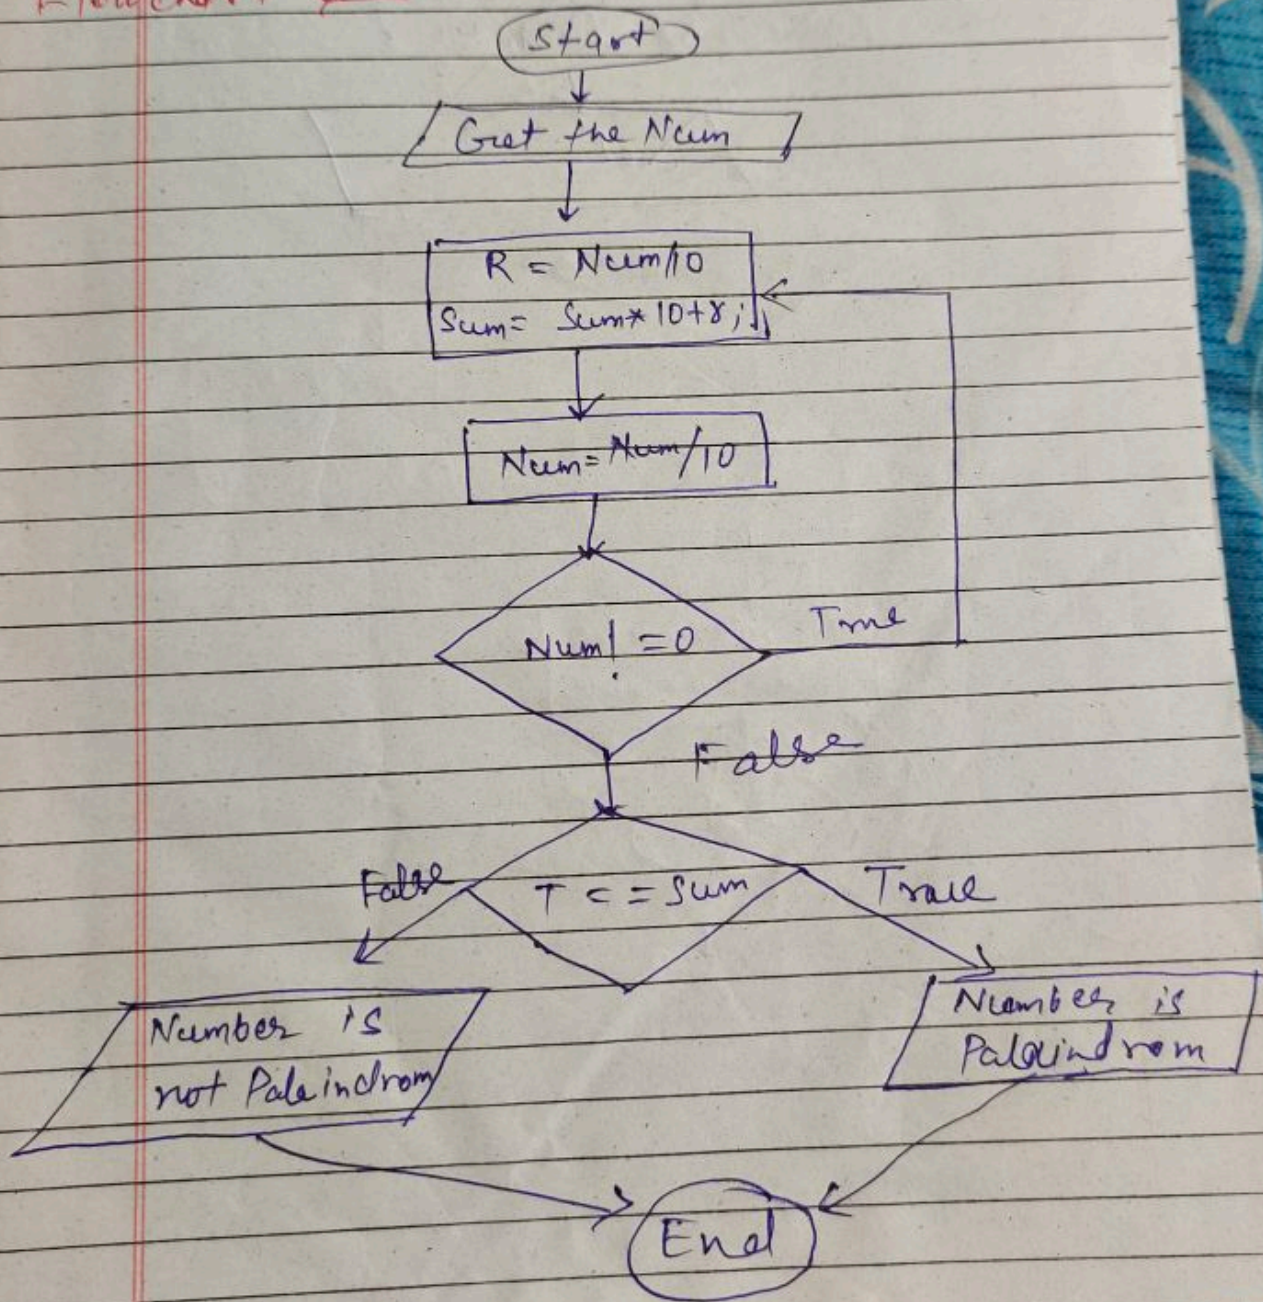 Start
Get the Num
R = Num/10
Sum = Sum* 10+r;
Num=Num/10
Num! =0
True
False
False
T < = Sum
True
Number is
not Palaindrom
Number is
Palaindrom
End